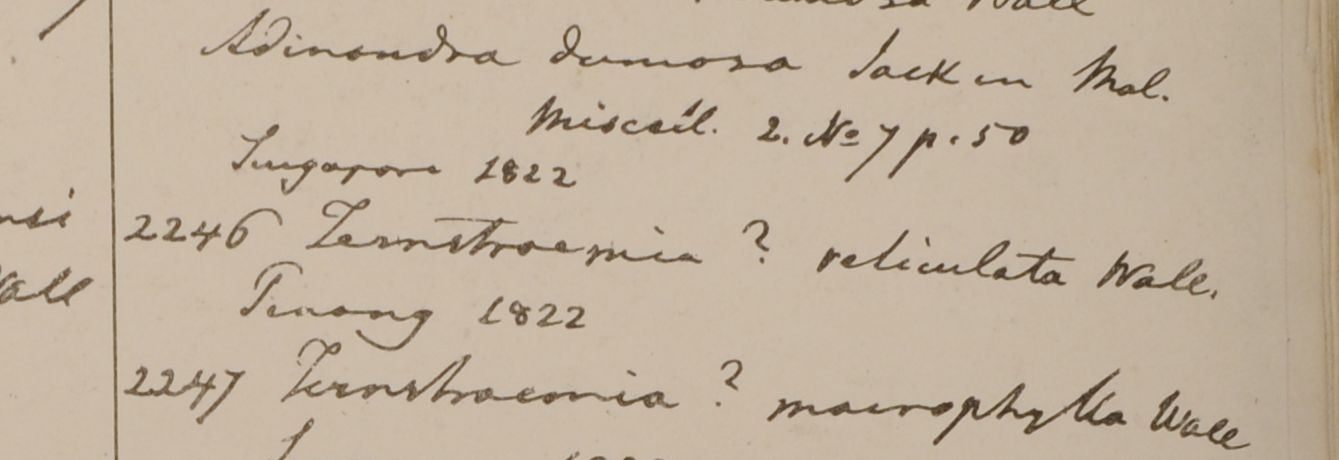 Wall
Adinandra dumosa Jack in Mal.
Miscell. 2. No 7 p. 50
Singapore 1822
2246 Ternstroemia ? reticulata Wall.
Penang 1822
2247 Ternstroemia ? macrophylla Wall